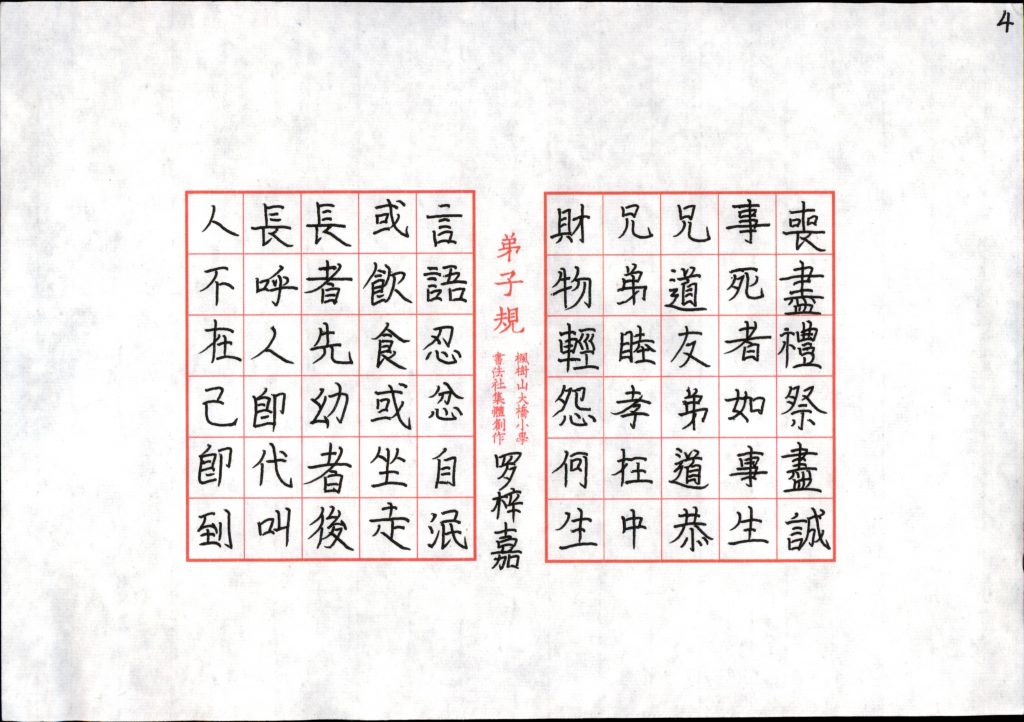 4
喪盡禮祭盡誠
事死者如事生
兄道友弟道恭
兄弟睦孝在中
財物輕怨何生
弟子規
楓樹山大橋小學
書法社集體創作
罗梓嘉
言語忍忿自泯
或飲食或坐走
長者先幼者後
長呼人即代叫
人不在己即到